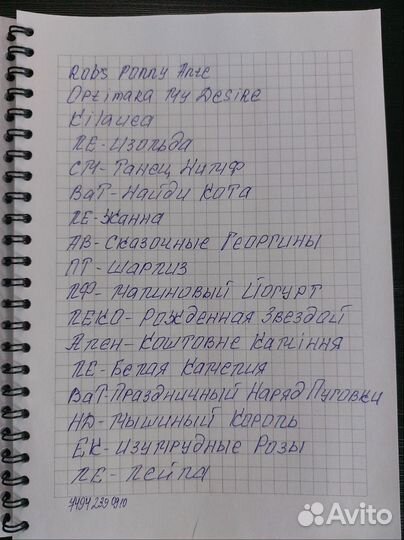 Rob's Ponny Ante
Optimara My Desire
Kilauea
ЛЕ-Изольда
СМ-Танец Нимф
ВаТ-Найди Кота
ЛЕ-Жанна
АВ-Сказочные Георгины
ПТ-Шарлиз
ЛФ-Малиновый Йогурт
ЛЕКО-Рожденная Звездой
Ален-Коштовне Камiння
ЛЕ-Белая Камелия
ВаТ-Праздничный Наряд Пуговки
НД-Мышиный Король
ЕК-Изумрудные Розы
ЛЕ-Лейла
Avito